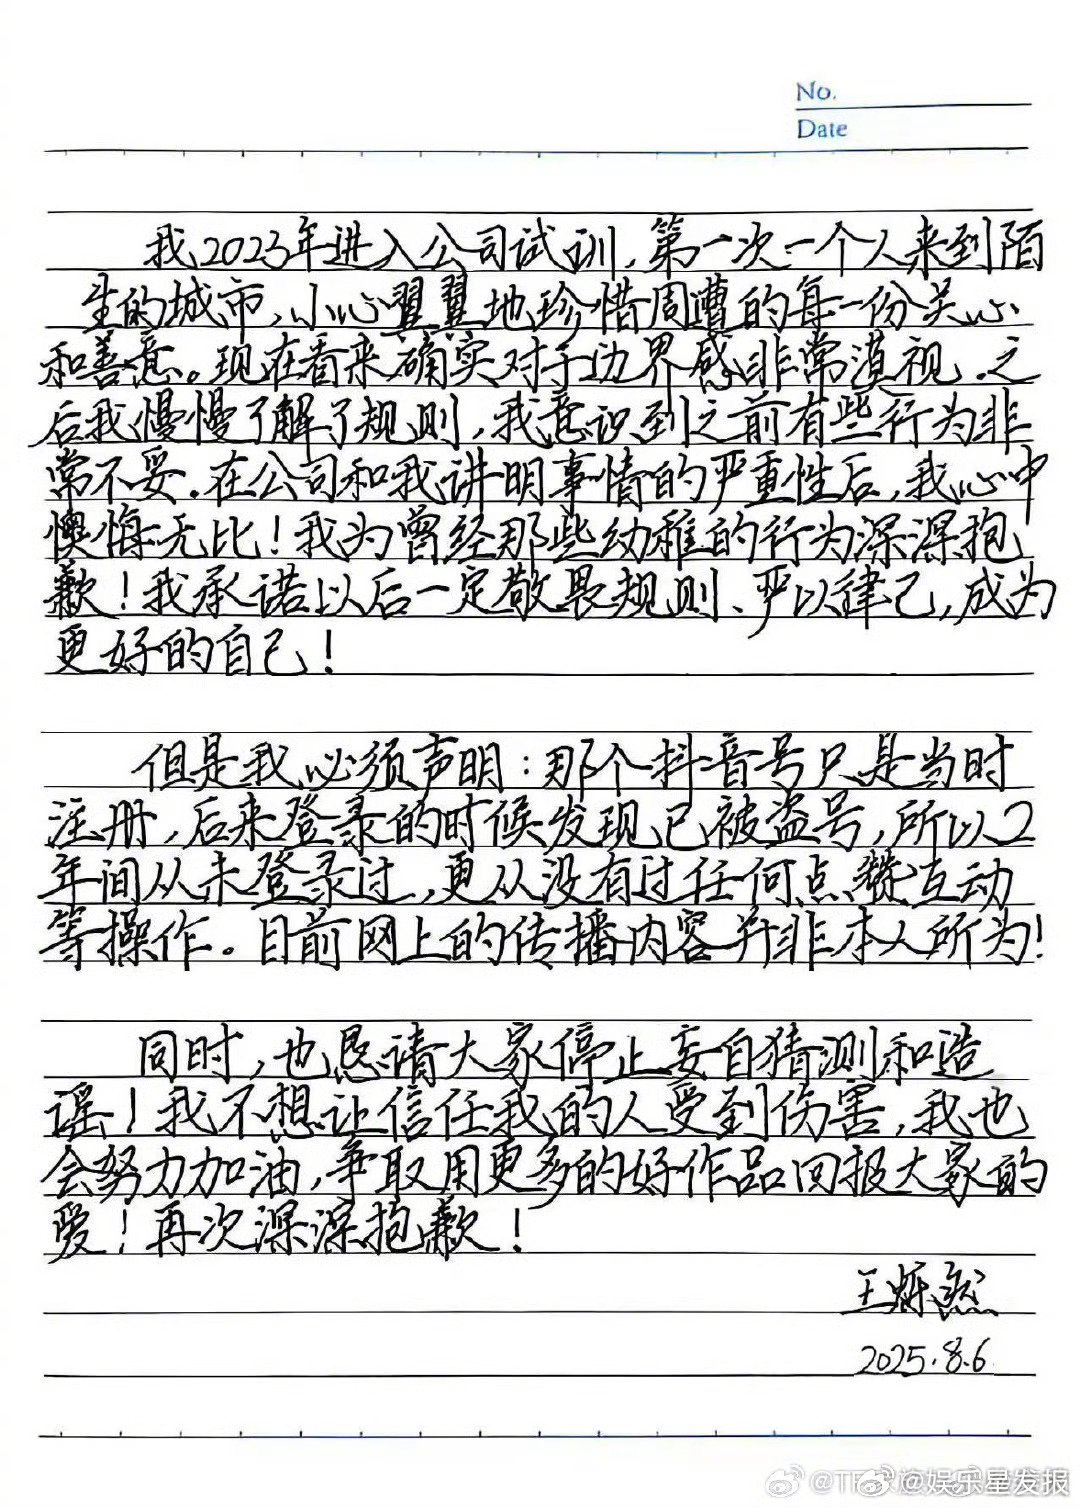 No.
Date
我2023年进入公司试训,第一次一个人来到陌
生的城市,小心翼翼地珍惜周遭的每一份关心
和善意。现在看来确实对于边界感非常漠视.之
后我慢慢了解了规则,我意识到之前有些行为非
常不妥.在公司和我讲明事情的严重性后,我心中
懊悔无比!我为曾经那些幼稚的行为深深抱
歉!我承诺以后一定敬畏规则、严以律己,成为
更好的自己!
但是我必须声明:那个抖音号只是当时
注册,后来登录的时候发现已被盗号,所以2
年间从未登录过,更从没有过任何点赞互动
等操作。目前网上的传播内容并非本人所为!
同时,也恳请大家停止妄自猜测和造
谣!我不想让信任我的人受到伤害,我也
会努力加油,争取用更多的好作品回报大家的
爱!再次深深抱歉!
王烁然
2025.8.6
@娱乐星发报